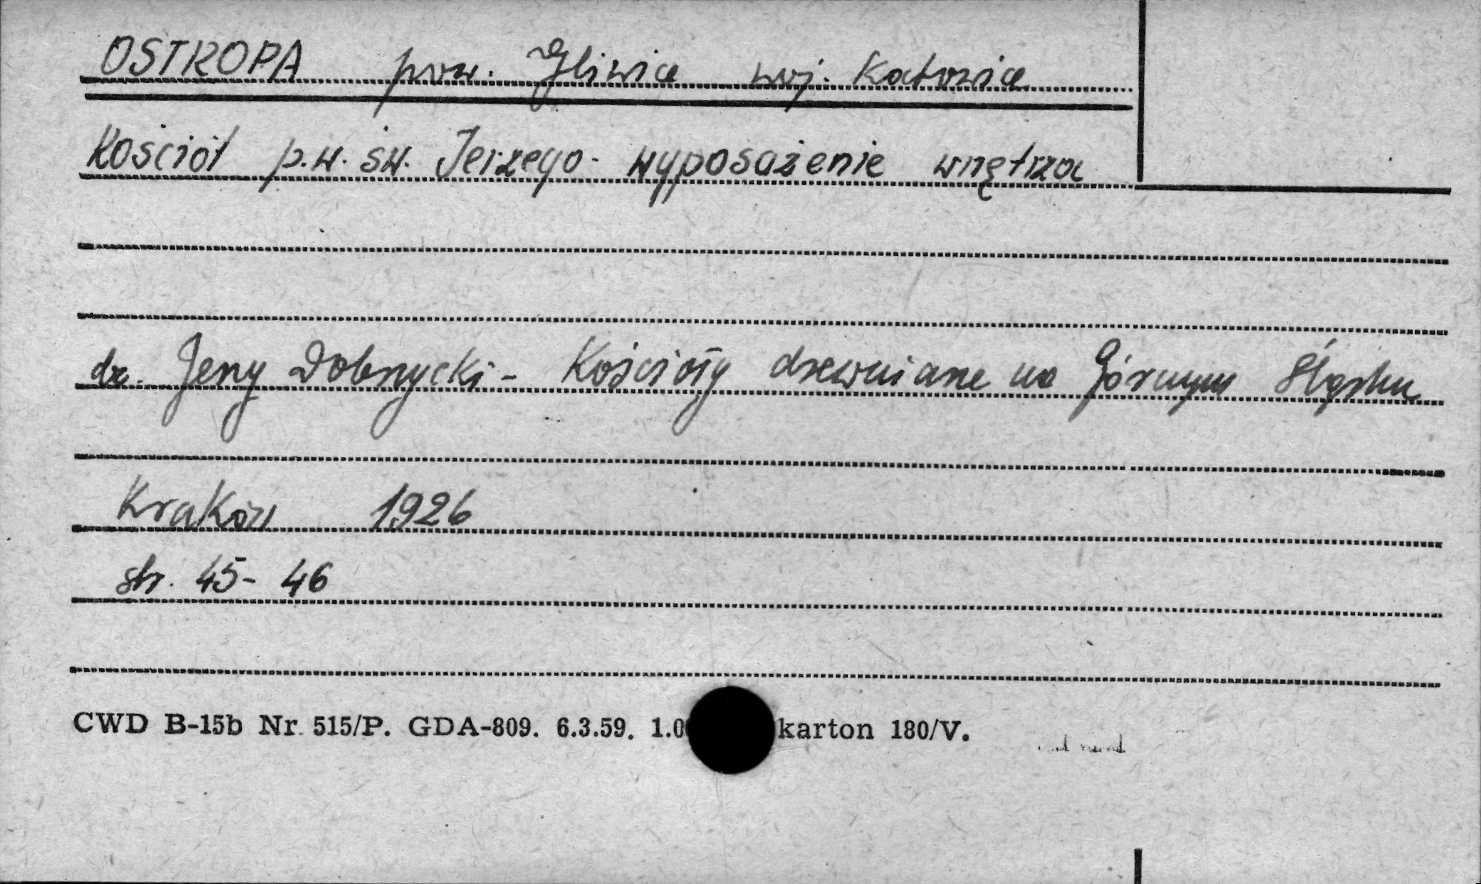 OSTROPA pow. Gliwice woj. Katowice
Kościół p.w. św. Jerzego - wyposażenie wnętrza
dr. Jerzy Dobrzycki - Kościoły drewniane na Górnym Śląsku
Kraków 1926
str. 45-46
CWD B-15b Nr 515/P. GDA-809. 6.3.59. 1.0 karton 180/V.